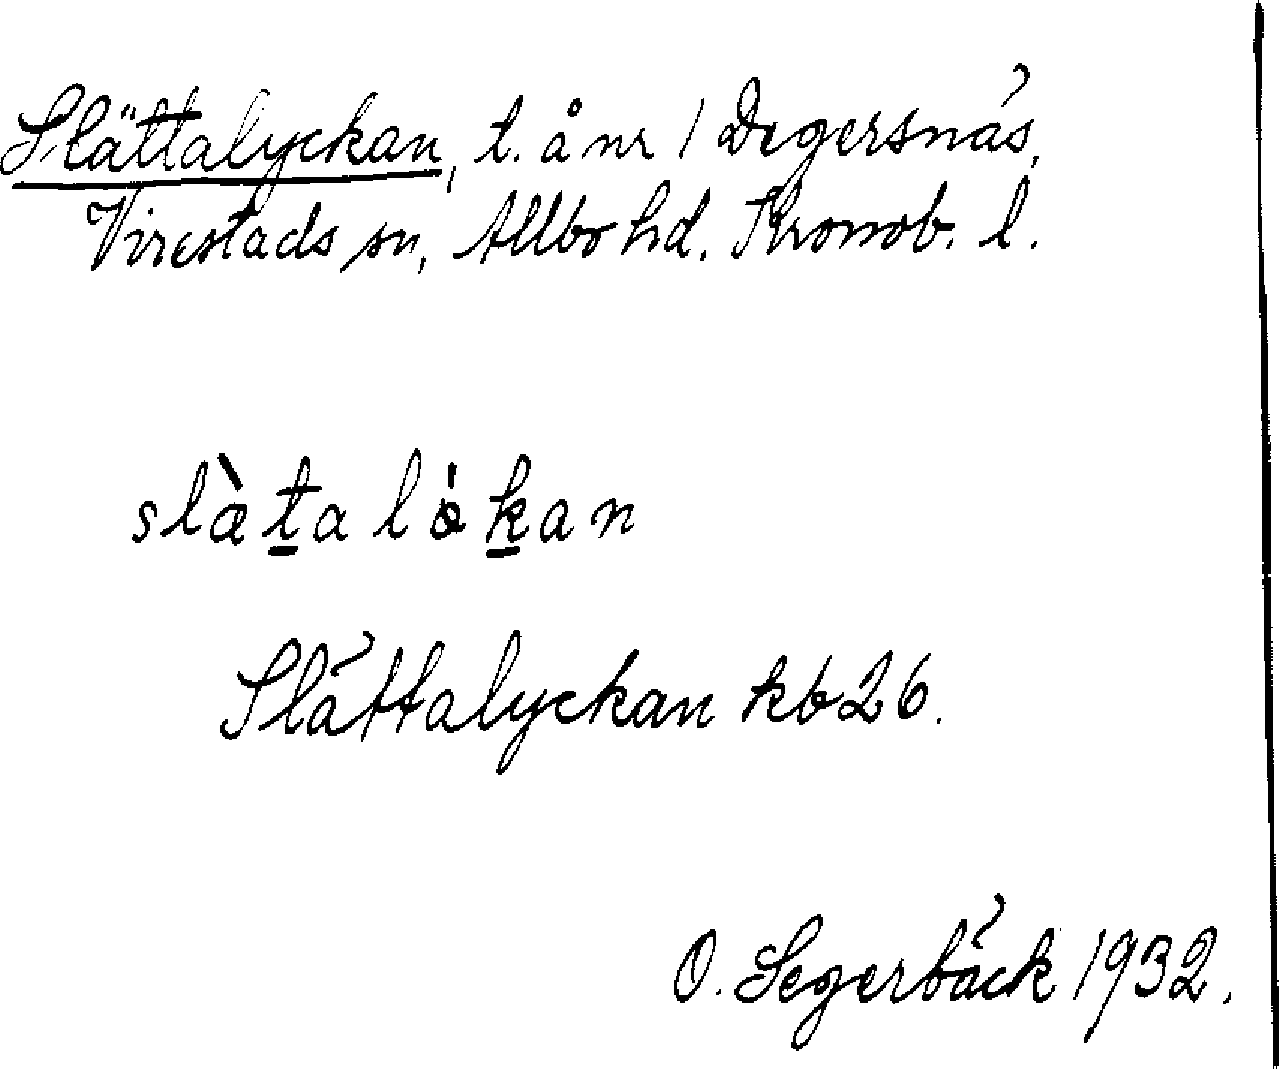 Slättalyckan, t. å nr 1 Degersnäs,
Virestads sn, Allbo hd. Kronob. l.
slæ̀ta lökan
Slättalyckan kb 26.
O. Segerbäck 1932.